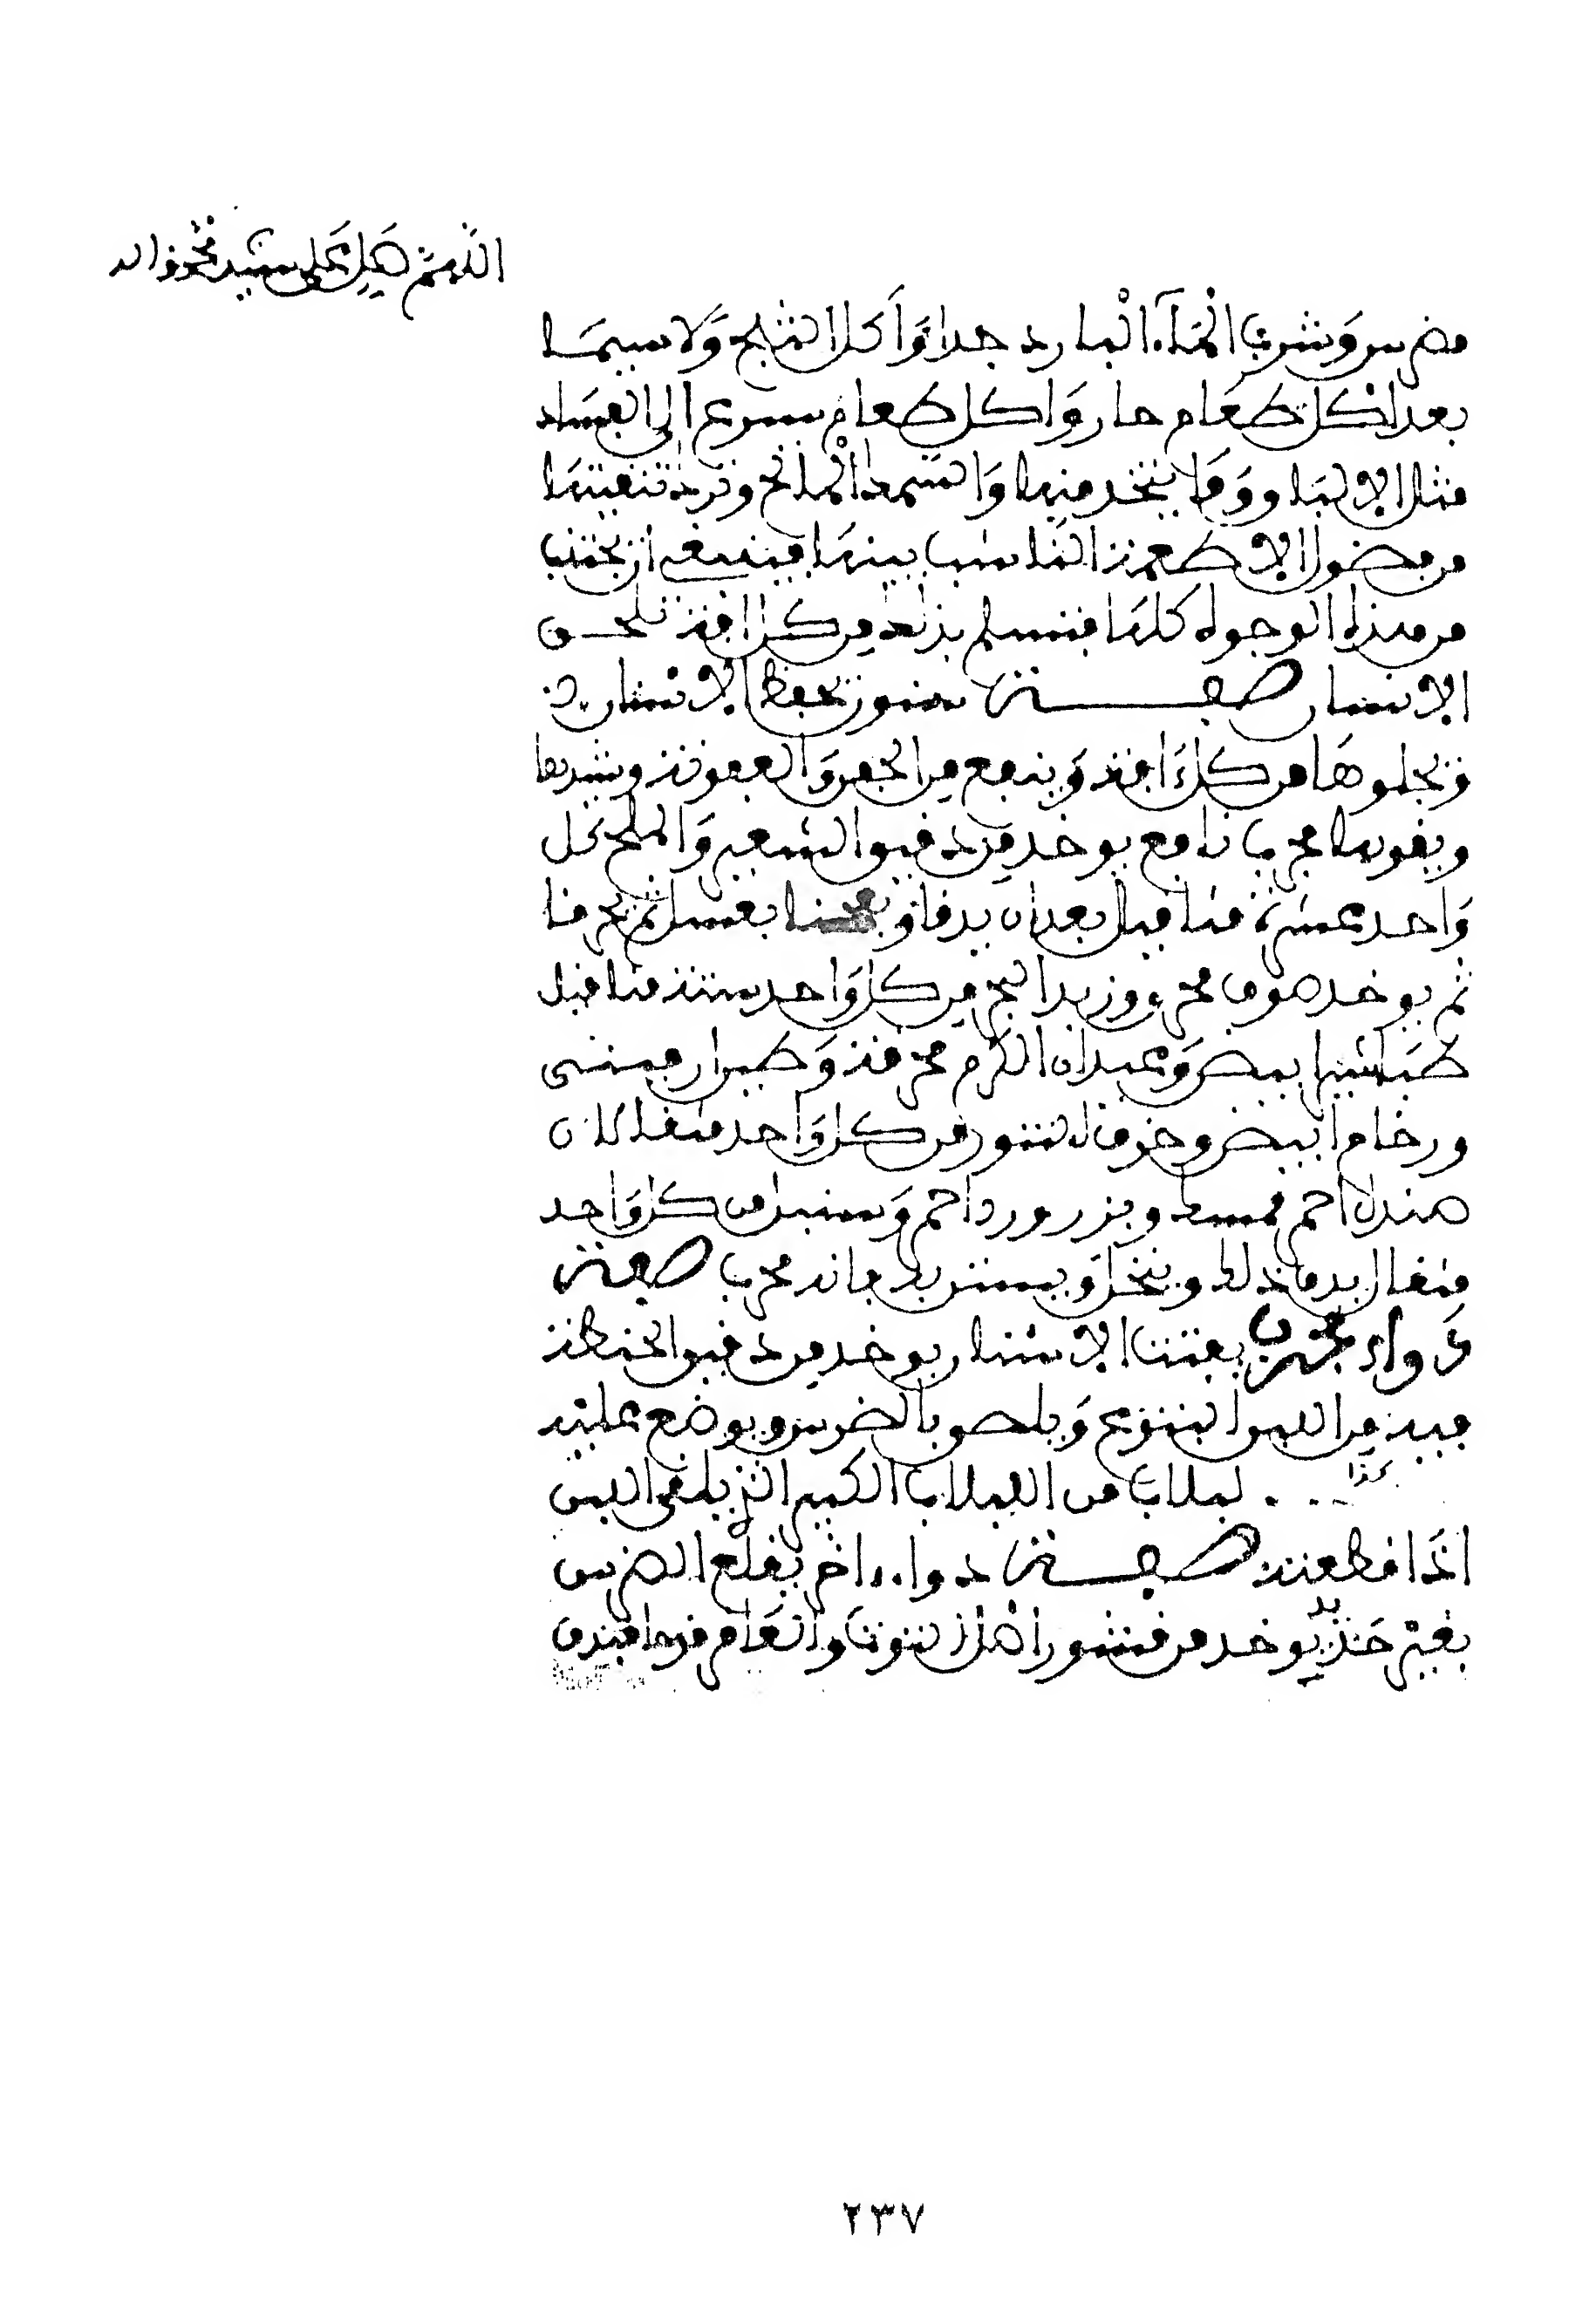 اللهم صل على سيدنا محمد واله
مضرس وشرب الماء البارد جدا واكل الثلج ولا سيما
بعد اكل طعام حار واكل طعام سريع الى الفساد
مثل الالبان وما يتخذ منها والسمك المالح وترك تنقيتها
من فضول الاطعمة الناشب بينها فينبغي ان يجتنب
من هذه الوجوه كلها فتسلم بذلك من كل افة تلحق
الاسنان صفة سنون تحفظ الاسنان
ويجلوها من كل افة وينفع من الحفر والعفونة ويشدها
ويقويها مجرب نافع يوخد من دقيق الشعير والملح كل
واحد عشرة مثاقيل بعد ان يدقا ويعجنا بعسل ثم يحرقا
ثم يوخد صوف محرق وزبد البحر من كل واحد ستة مثاقيل
طباشير ابيض وعيدان الكرم محرقة وطين ارميني
ورخام ابيض وخزف التنور من كل واحد مثقالان
صندل احمر ومسك وبزر ورد احمر وسنبل من كل واحد
مثقال يدق ذلك وينخل ويستن به فانه مجرب صفة
دواء مجرب يفتت الاسنان يوخد من دقيق الحنطة
فيه من اللبن اليتوع ويلصق بالضرس ويوضع عليه
كذا ... لبلاب من اللبلاب الكبير الذي يلقى اللبن
اذا قطعته صفة دواء اخر يقلع الضرس
بغير حديد يوخد من قشور اصل التوت والعاقرقرحا فيدق
٢٣٧